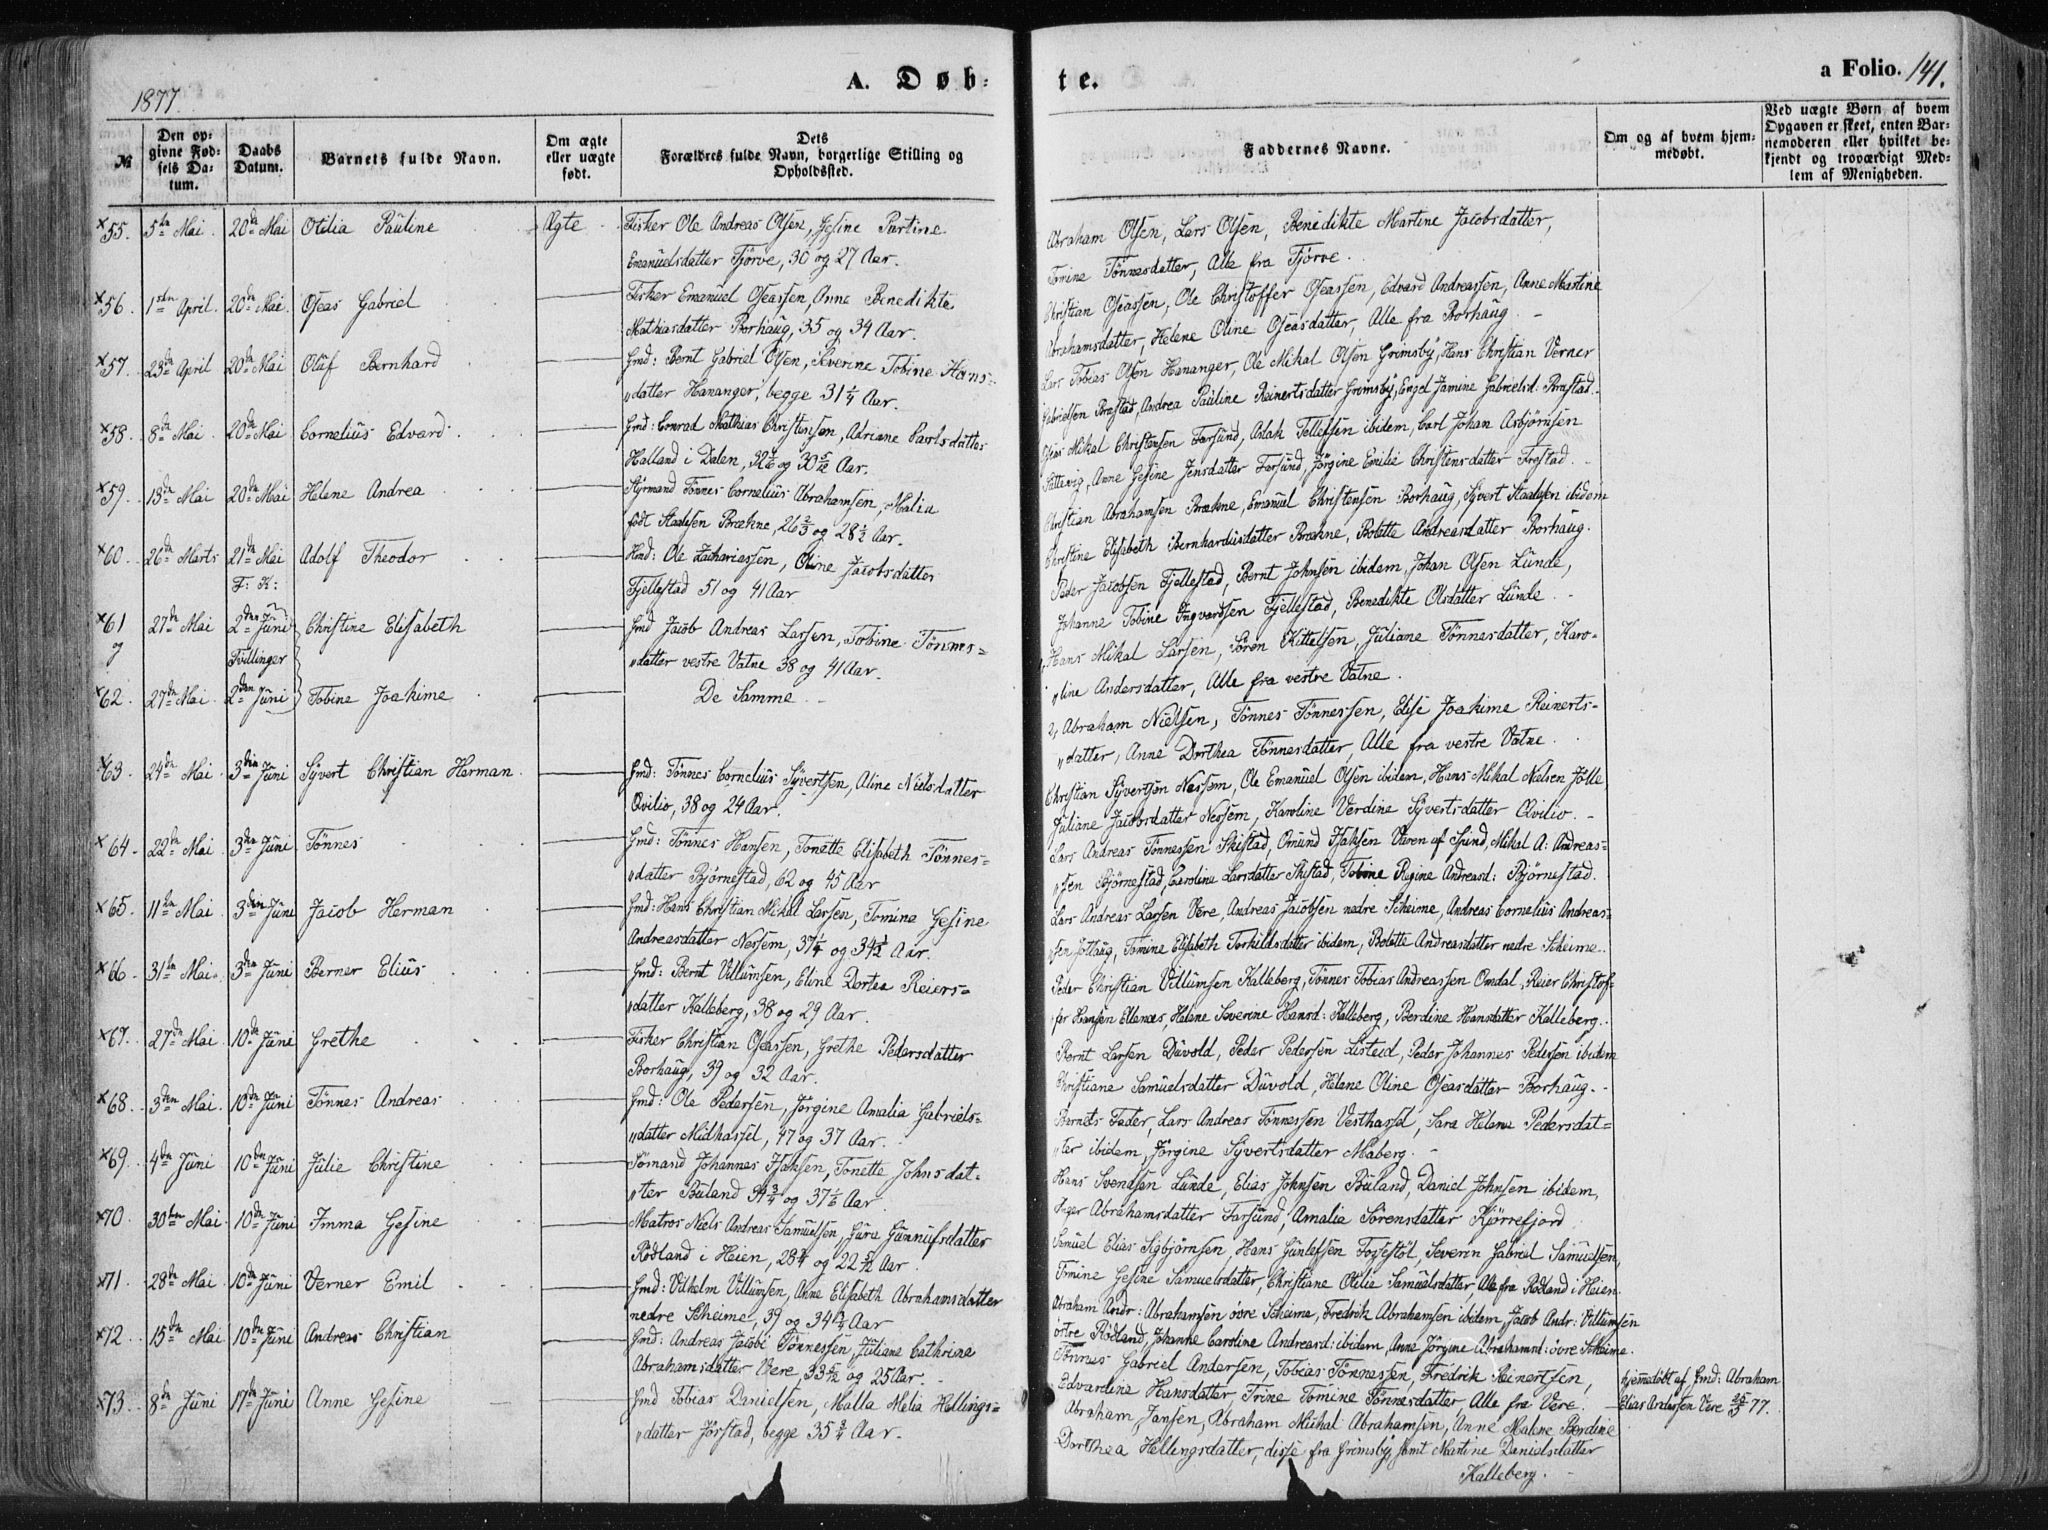 1877.
A. Døb=
te.
a Folio. 141.
№
Den op=
givne Fød=
sels Da=
tum.
Daabs
Datum.
Barnets fulde Navn.
Om ægte
eller uægte
født.
Dets
Forældres fulde Navn, borgerlige Stilling og
Opholdssted.
Faddernes Navne.
Om og af hvem hjem=
medøbt.
Ved uægte Børn af hvem
Opgaven er skeet, enten Bar=
nemoderen eller hvilket be=
kjendt og troværdigt Med=
lem af Menigheden.
×55. 5te Mai 20de Mai Otilia Pauline Ægte Fisker Ole Andreas Olsen, Gesine Partine
Emanuelsdatter Tjörve, 30 og 27 Aar.
Abraham Olsen, Lars Olsen, Benedikte Martine Jacobsdatter,
Tomine Tönnesdatter, Alle fra Tjörve.
×56. 1ste April. 20de Mai Oseas Gabriel Fisker Emanuel Oseassen, Anne Benedikte
Mathiasdatter Borhaug, 35 og 34 Aar.
Christian Oseassen, Ole Christoffer Oseassen, Edvard Andreassen, Anne Martine
Abrahamsdatter, Helene Oline Oseasdatter, Alle fra Borhaug.
×57. 23de April 20de Mai Olaf Bernhard Gmd: Bernt Gabriel Olsen, Severine Tobine Hans=
„datter Hananger, begge 31 1/4 Aar.
Lars Tobias Olsen Hananger, Ole Mikal Olsen Grimsby, Hans Christian Verner
Gabrielsen Prastad, Andrea Pauline Reinertsdatter Grimsby, Engel Jamine Gabrielsd. Prastad.
×58. 8de Mai 20de Mai Cornelius Edvard Gmd: Conrad Mathias Christensen, Adriane Carlsdatter
Halland i Dalen, 32 1/6 og 30 5/12 Aar.
Elias Mikal Christensen Farsund, Aslak Tellefsen ibidem, Carl Johan Asbjörnsen
Sattevig, Anne Gesine Jensdatter Farsund, Jörgine Emilie Christensdatter Frestad.
×59. 13de Mai 20de Mai Helene Andrea Styrmand Tönnes Cornelius Abrahamsen, Malia
født Staalesen Brækne, 26 2/3 og 28 1/2 Aar.
Christian Abrahamsen Brækne, Emanuel Christensen Borhaug, Syvert Staalesen ibidem
Christine Elisabeth Bernhardusdatter Brækne, Bolette Andreasdatter Borhaug.
×60. 26de Marts 21de Mai Adolf Theodor Hmd: Ole Zachariassen, Oline Jacobsdatter
F: K:
Fjellestad 51 og 41 Aar
Peder Jacobsen Fjellestad, Bernt Johnsen ibidem, Johan Olsen Lunde,
Johanne Tobine Ingvardsen Fjellestad, Benedikte Olsdatter Lunde.
×61 27de Mai 2den Juni Christine Elisabeth Gmd Jacob Andreas Larsen, Tobine Tönnes=
og
Tvillinger
„datter vestre Vatne 38 og 41 Aar.
1, Hans Mikal Larsen, Sören Kittelsen, Juliane Tönnesdatter, Karo=
„line Andersdatter, Alle fra vestre Vatne.
×62. 27de Mai. 2den Juni Tobine Joakime De Samme.
2, Abraham Nielsen, Tönnes Tönnessen, Elise Joakime Reinerts=
„datter, Anne Dorthea Tönnesdatter, Alle fra vestre Vatne.
×63. 24de Mai. 3die Juni Syvert Christian Herman. Gmd: Tönnes Cornelius Syvertsen, Aline Nielsdatter
Qvilio, 38 og 24 Aar.
Christian Syvertsen Nessem, Ole Emanuel Olsen ibidem, Hans Mikal Nielsen Jölle,
Juliane Jacobsdatter Nessem, Karoline Verdine Syvertsdatter Qvilio.
×64. 22de Mai 3die Juni Tönnes Gmd: Tönnes Hansen, Tonette Elisabeth Tönnes=
„datter Bjørnestad, 62 og 45 Aar
Lars Andreas Tönnessen Skistad, Omund Isaksen Varen af Lund, Mikal A: Andreas=
„sen Bjørnestad, Caroline Larsdatter Skistad, Tobine Regine Andreasd: Bjørnestad.
×65. 11te Mai 3die Juni Jacob Herman Gmd: Hans Christian Mikal Larsen, Tomine Gesine
Andreasdatter Nessem, 37 1/4 og 34 1/2 Aar.
Lars Andreas Larsen Vere, Andreas Jacobsen nedre Scheime, Andreas Cornelius Andreas=
„sen Jøllaug, Tomine Elisabeth Torkildsdatter ibidem, Bolette Andreasdatter nedre Scheime.
×66. 31te Mai. 3die Juni Berner Elius Gmd: Bernt Villumsen, Eline Dortea Reiers=
„datter Kalleberg, 38 og 29 Aar.
Peder Christian Villumsen Kalleberg, Tönnes Tobias Andreassen Omdal, Reier Christof=
„fer Hansen Ellenes, Helene Severine Hansd: Kalleberg, Berdine Hansdatter Kalleberg.
×67. 27de Mai 10de Juni Grethe Fisker Christian Oseassen, Grethe Pedersdatter
Borhaug, 39 og 32 Aar.
Bernt Larsen Duvold, Peder Pedersen Listeid, Peder Johannes Pedersen ibidem
Christiane Samuelsdatter Duvold, Helene Oline Oseasdatter Borhaug.
×68. 3die Mai. 10de Juni Tönnes Andreas Gmd: Ole Pedersen, Jörgine Amalia Gabriels=
„datter Midhassel, 47 og 37 Aar.
Barnets Fader, Lars Andreas Tönnessen Vesthassel, Sara Helene Pedersdat=
„ter ibidem, Jörgine Syvertsdatter Maberg.
×69. 4de Juni 10de Juni Julie Christine Sømand Johannes Isaksen, Tonette Johnsdat=
„ter Buland 34 3/4 og 37 1/6 Aar.
Hans Svendsen Lunde, Elias Johnsen Buland, Daniel Johnsen ibidem,
Inger Abrahamsdatter Farsund, Amalia Sörensdatter Kjørrefjord
×70. 30te Mai 10de Juni Imma Gesine Matros Niels Andreas Samuelsen, Gure Gunnufsdatter
Rödland i Heien, 28 1/4 og 22 5/12 Aar.
Samuel Elias Sigbjörnsen, Hans Gunlefsen Fogestöl, Severin Gabriel Samuelsen,
Tomine Gesine Samuelsdatter, Christiane Otilie Samuelsdatter, Alle fra Rödland i Heien.
×71. 28de Mai 10de Juni Verner Emil Gmd: Vilhelm Villumsen, Anne Elisabeth Abrahamsdatter
nedre Scheime, 39 og 34 3/4 Aar.
Abraham Andr: Abrahamsen övre Scheime, Fredrik Abrahamsen ibidem, Jacob Andr: Villumsen
östre Rödland, Johanne Caroline Andreasd: ibidem, Anne Jörgine Abrahamsd: övre Scheime.
×72 15de Mai 10de Juni Andreas Christian Gmd: Andreas Jacobi Tönnessen, Juliane Cathrine
Abrahamsdatter Vere, 33 5/12 og 25 Aar.
Tönnes Gabriel Andersen, Tobias Tönnessen, Fredrik Reinertsen,
Edvardine Hansdatter, Trine Tomine Tönnesdatter, Alle fra Vere.
hjemmedöbt af Gmd: Abraham
Elias Andersen Vere 25/5 77.
×73. 8de Juni 17de Juni Anne Gesine Gmd Tobias Danielsen, Malla Melia Hellings=
„datter Jørstad, begge 35 3/4 Aar.
Abraham Jansen, Abraham Mikal Abrahamsen, Anne Malene Berdine
Dorthea Hellingsdatter, disse fra Grimsby, samt Martine Danielsdatter
Kalleberg.